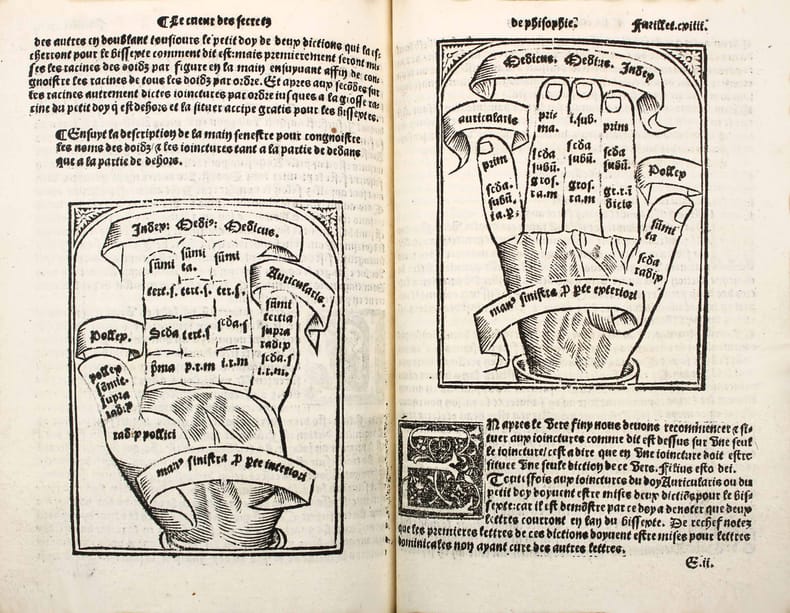 Le cueur des secretz
des autres en doublant tousiours le petit doy de deux dictions qui la es-
cherront pour le bissexte comment dit est: mais premierement seront mi-
ses les racines des doidz par figure en la main ensuyuant affin de con-
gnoistre les racines de tous les doidz par ordre. Et apres aux secōdes sur
les racines autrement dictes ioinctures par ordre iusques a la grosse ra-
cine du petit doy q̄ est dehors et la situer accipe gratis pour les bissextes.
Ensuyt la description de la main senestre pour congnoistre
les noms des doidz & les ioinctures tant a la partie de dedans
que a la partie de dehors.
Index: Medi9: Medicus.
Auricularis.
Pollex.
sūmi sūmi sūmi
ta.
tert.s. tert.s. ter.s.
Scḋa tert.s. scḋa.s
p̄ma p.r.m i.r.m
sūmi
tertia
supra
radix
scḋa.s
i.r.m.
pollex
sūmit.
supra
rad.p
rad.p pollici
man9 sinistra p pte interiori
de phisophie.
Fueillet.cxiiii.
Medicus. Medius. Index
auricularis
Pollex
prim
scḋa.
subū.
ia.p.
prī
ma.
scḋa
subū.
gros.
ra.m
i.sub.
scḋa
subū.
gros.
ra.m
prim
scḋa
subū.
gr.r.ī
dicis
sūmi
ta
scḋa
radix
man9 sinistra p pte exteriori
EN apres le Vers finy nous deuons recommencer & si-
tuer aux ioinctures comme dit est dessus sur vne seul
le ioincture/cest a dire que en vne ioincture doit estre
situee vne seulle diction de ce Vers. Filius esto dei.
Toutesfois aux ioinctures du doy Auricularis ou du
petit doy doyuent estre mises deux dictiōs pour le bis-
sexte: car il est demōstre par ce doy a denoter que deux
lettres courront en lan du bissexte. De rechef notez
que les premieres lettres de ces dictions doyuent estre mises pour lettres
dominicales non ayant cure des autres lettres.
E.ii.